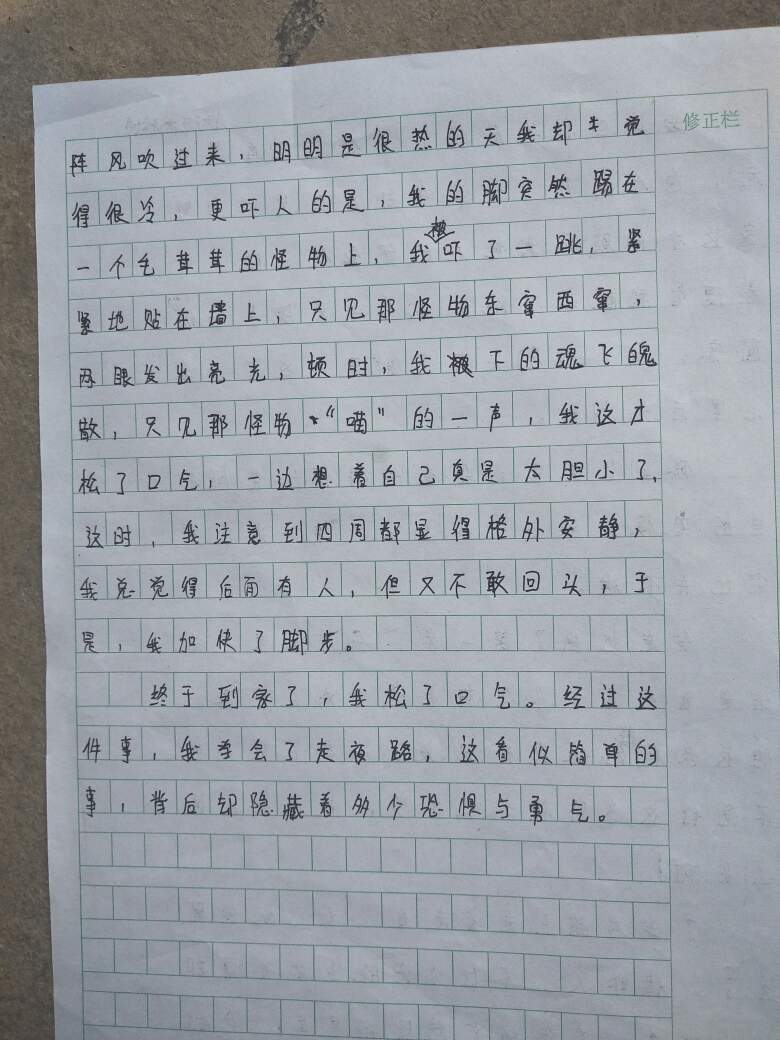 修正栏
阵风吹过来，明明是很热的天我却觉
得很冷，更吓人的是，我的脚突然踢在
一个毛茸茸的怪物上，我被吓了一跳，紧
紧地贴在墙上，只见那怪物东窜西窜，
两眼发出亮光，顿时，我被下的魂飞魄
散，只见那怪物“喵”的一声，我这才
松了口气，一边想着自己真是太胆小了，
这时，我注意到四周都显得格外安静，
我总觉得后面有人，但又不敢回头，于
是，我加快了脚步。
终于到家了，我松了口气。经过这
件事，我学会了走夜路，这看似简单的
事，背后却隐藏着多个恐惧与勇气。